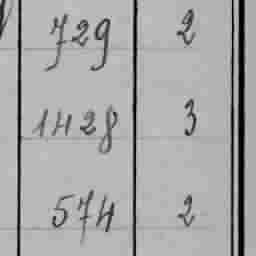 729 2
1428 3
574 2